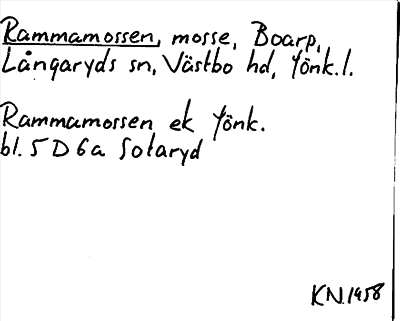 Rammamossen, mosse, Boarp,
Långaryds sn, Västbo hd, Jönk.l.
Rammamossen ek Jönk.
bl. 5 D 6a Sotaryd
KN.1958